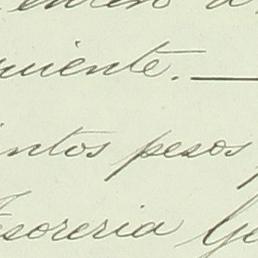 uiente.
intos pesos
Tesoreria Ge